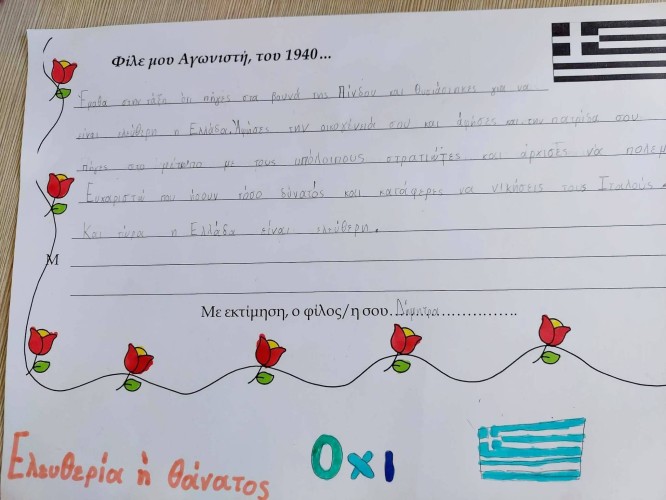 Φίλε μου Αγωνιστή, του 1940...
Έμαθα στην τάξη ότι πήγες στα βουνά της Πίνδου και θυσιάστηκες για να
είναι ελεύθερη η Ελλάδα. Άφησες την οικογένειά σου και άφησες και την πατρίδα σου.
πήγες στο μέτωπο με τους υπόλοιπους στρατιώτες και άρχισες να πολεμ
Ευχαριστώ που ήσουν τόσο δυνατός και κατάφερες να νικήσεις τους Ιταλούς.
Και τώρα η Ελλάδα είναι ελεύθερη.
Μ
Με εκτίμηση, ο φίλος/η σου...Δήμητρα...............
Ελευθερία ή θάνατος
Οχι